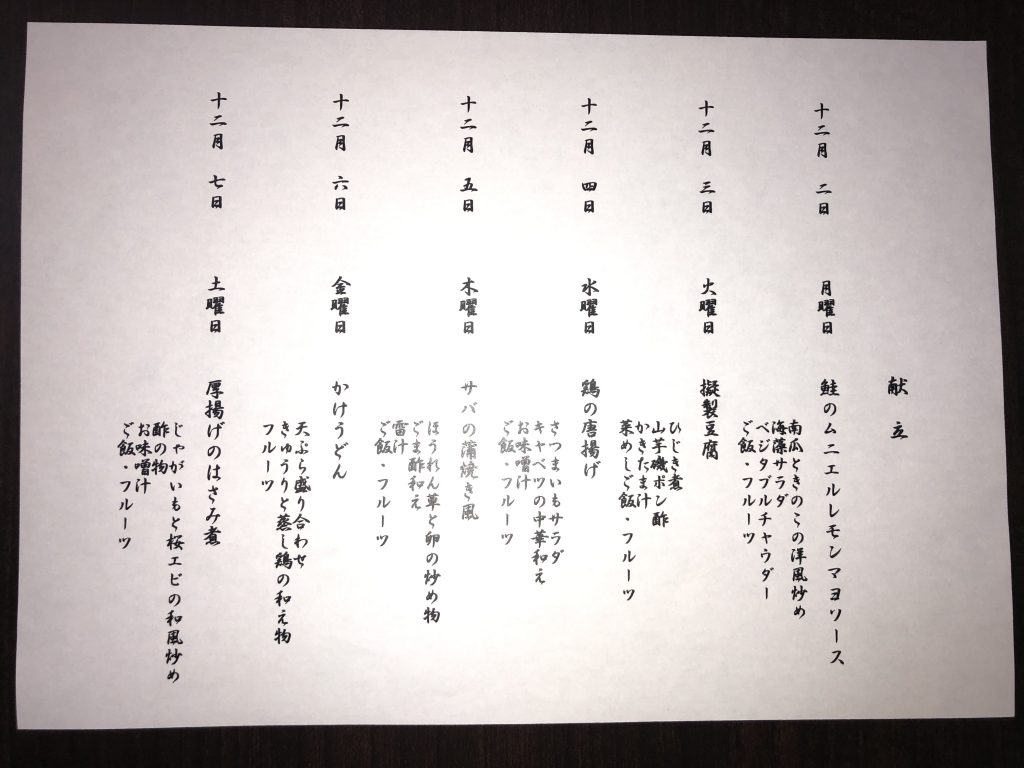 献立
十二月 二日 月曜日 鮭のムニエルレモンマヨソース
南瓜ときのこの洋風炒め
海藻サラダ
ベジタブルチャウダー
ご飯・フルーツ
十二月 三日 火曜日 擬製豆腐
ひじき煮
山芋磯ポン酢
かきたま汁
菜めしご飯・フルーツ
十二月 四日 水曜日 鶏の唐揚げ
さつまいもサラダ
キャベツの中華和え
お味噌汁
ご飯・フルーツ
十二月 五日 木曜日 サバの蒲焼き風
ほうれん草と卵の炒め物
ごま酢和え
雷汁
ご飯・フルーツ
十二月 六日 金曜日 かけうどん
天ぷら盛り合わせ
きゅうりと蒸し鶏の和え物
フルーツ
十二月 七日 土曜日 厚揚げのはさみ煮
じゃがいもと桜エビの和風炒め
酢の物
お味噌汁
ご飯・フルーツ